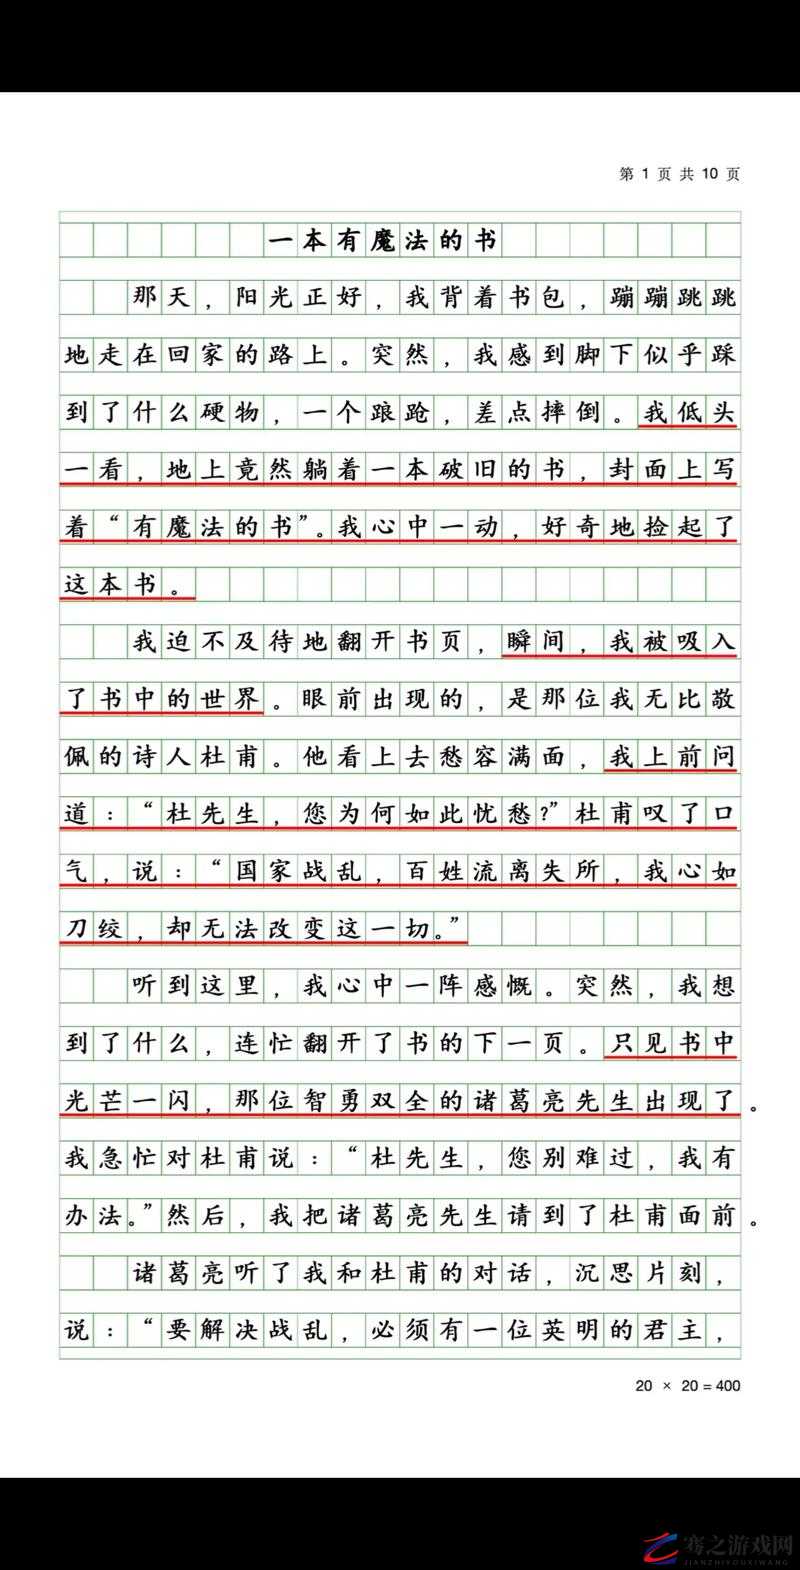 第 1 页 共 10 页
一本有魔法的书
那天，阳光正好，我背着书包，蹦蹦跳跳
地走在回家的路上。突然，我感到脚下似乎踩
到了什么硬物，一个踉跄，差点摔倒。我低头
一看，地上竟然躺着一本破旧的书，封面上写
着“有魔法的书”。我心中一动，好奇地捡起了
这本书。
我迫不及待地翻开书页，瞬间，我被吸入
了书中的世界。眼前出现的，是那位我无比敬
佩的诗人杜甫。他看上去愁容满面，我上前问
道：“杜先生，您为何如此忧愁？”杜甫叹了口
气，说：“国家战乱，百姓流离失所，我心如
刀绞，却无法改变这一切。”
听到这里，我心中一阵感慨。突然，我想
到了什么，连忙翻开了书的下一页。只见书中
光芒一闪，那位智勇双全的诸葛亮先生出现了。
我急忙对杜甫说：“杜先生，您别难过，我有
办法。”然后，我把诸葛亮先生请到了杜甫面前。
诸葛亮听了我和杜甫的对话，沉思片刻，
说：“要解决战乱，必须有一位英明的君主，
20 × 20 = 400
骞之游戏网
JIANZHIYOUXIWANG